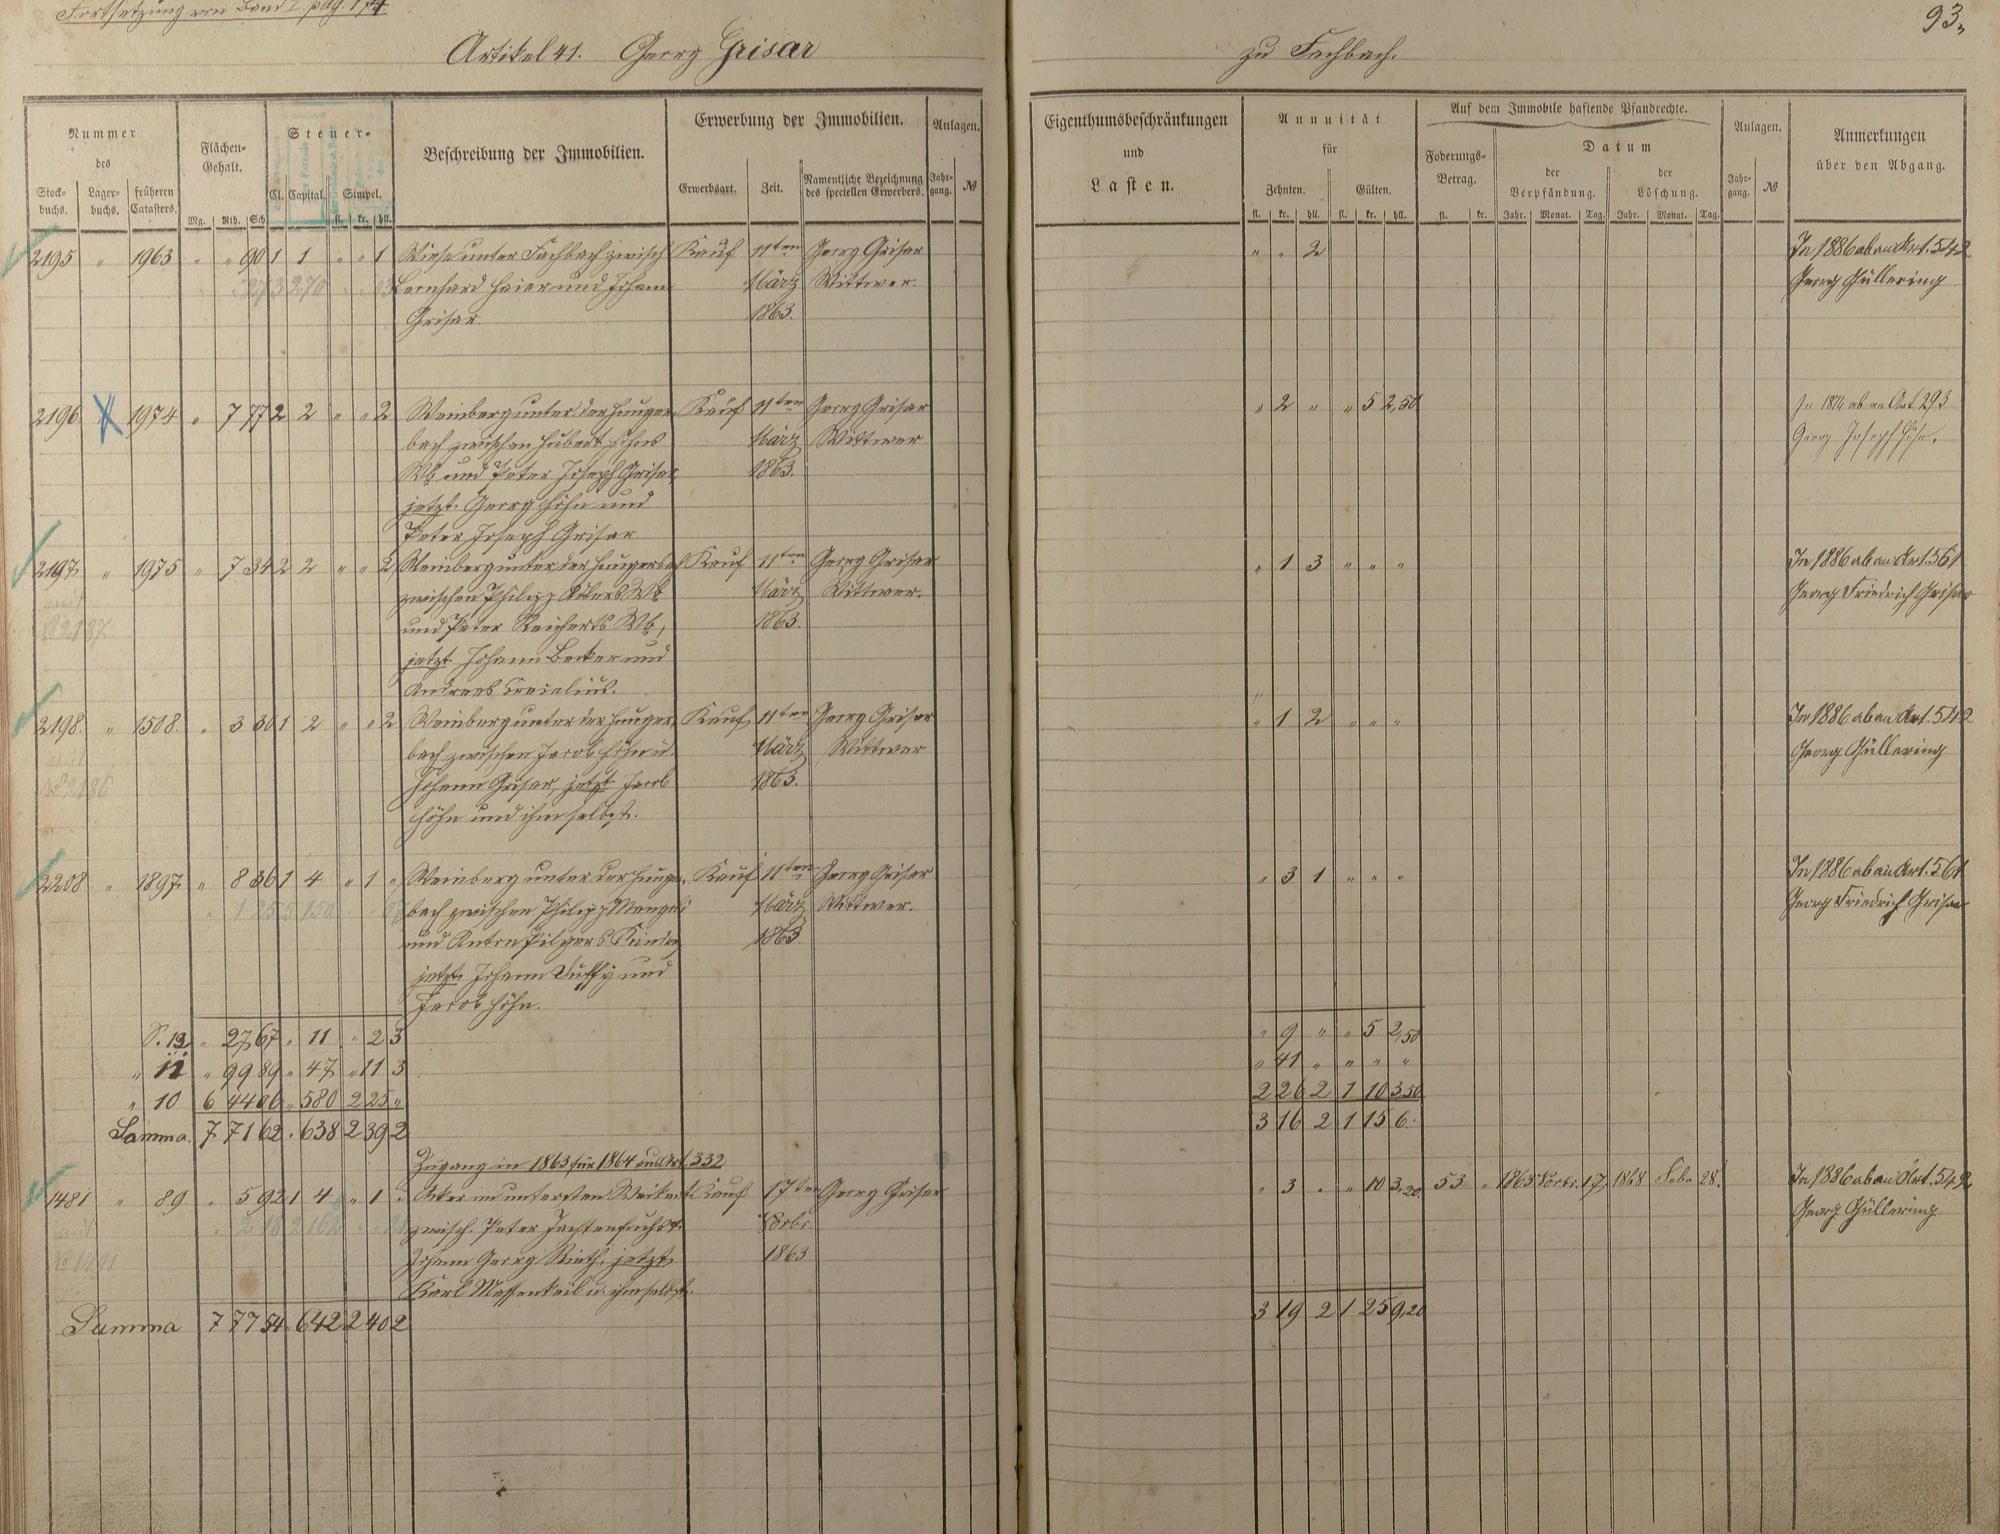 Fortsetzung von Band I pag. 174.
93.
Artikel 41. Georg Grisar
zu Fachbach.
Nummer
des
Stock-
buchs.
Lager-
buchs.
früheren
Catasters.
Flächen-
Gehalt.
Mg. Rth. Sch
Steuer-
Cl. Capital. Simpel.
fl. kr. hll.
Beschreibung der Immobilien.
Erwerbung der Immobilien.
Erwerbsart. Zeit.
Namentliche Bezeichnung
des speciellen Erwerbers.
Anlagen.
Jahr-
gang. №
Eigenthumsbeschränkungen
und
Lasten.
Annuität
für
Zehnten. Gülten.
fl. kr. hll. fl. kr. hll.
Auf dem Immobile haftende Pfandrechte.
Foderungs-
Betrag.
fl. kr.
Datum
der
Verpfändung.
Jahr. Monat. Tag.
der
Löschung.
Jahr. Monat. Tag.
Anlagen.
Jahr-
gang. №
Anmerkungen
über den Abgang.
2195 " 1963 " " 90 1 1 " " 1 Wiese unter Fachbach zwisch Kauf 11ten Georg Grisar " " 2 In 1886 ab an Art. 542
273 270 Bernhard Heier und Johann März Wittwer. Georg Güllering
Grisar. 1863.
2196 1974 " 7 77 2 2 " " 2 Weinberg unter der Hunger- Kauf 11ten Georg Grisar " 2 " " 5 2,50 In 1874 ab an Art. 293
bach zwischen Hubert Höhns März Wittwer Georg Joseph Höhn.
Wb und Peter Joseph Grisar, 1863.
jetzt. Georg Höhn und
Peter Joseph Grisar
2197 " 1975 " 7 34 2 2 " " 2 Weinberg unter der Hungerbach Kauf 11ten Georg Grisar " 1 3 " " " In 1886 ab an Art. 561
zwischen Philipp Wb März Wittwer. Georg Friedrich Grisar
2187 und Peter Reicherts Wb, 1863.
jetzt. Johann Becker und
Andreas Creielius.
2198. " 1508. " 3 30 1 2 " " 2 Weinberg unter der Hunger- Kauf 11ten Georg Grisar " 1 2 " " " In 1886 ab an Art. 542
bach zwischen Jacob Höhn u. März Wittwer Georg Güllering
2186 Johann Grisar, jetzt Jacob 1863.
Höhn und ihm selbst.
2208 " 1897 " 8 36 1 4 " 1 " Weinberg unter der Hunger- Kauf 11ten Georg Grisar " 3 1 " " " In 1886 ab an Art. 561
1 25 5 150 bach zwischen Philipp Mengel März Wittwer. Georg Friedrich Grisar
und Anton Pilgers Kinder 1863.
jetzt. Johann Duffy und
Jacob Höhn.
S. 12 " 27 67 " 11 " 2 3 " 9 " " 5 2,50
" 11 " 99 89 " 47 " 11 3 " 41 " " " "
" 10 6 44 06 " 580 2 25 " 2 26 2 1 10 3,50
Summa. 7 71 62 " 638 2 39 2 3 16 2 1 15 6.
Zugang in 1863 für 1864 aus Art. 332
1481 " 89. " 5 92 1 4 " 1 " Acker im untersten Kauf 17ten Georg Grisar " 3 " " 10 3,20. 53 " 1863 Novbr. 17. 1868 Febr. 28. In 1886 ab an Art. 542
2 18 2 162 zwisch. Peter Novbr. Georg Güllering
Johann Georg Rieth, jetzt 1863
Karl Massenkeil u. ihm selbst.
Summa 7 77 54 " 642 2 40 2 3 19 2 1 25 9,20